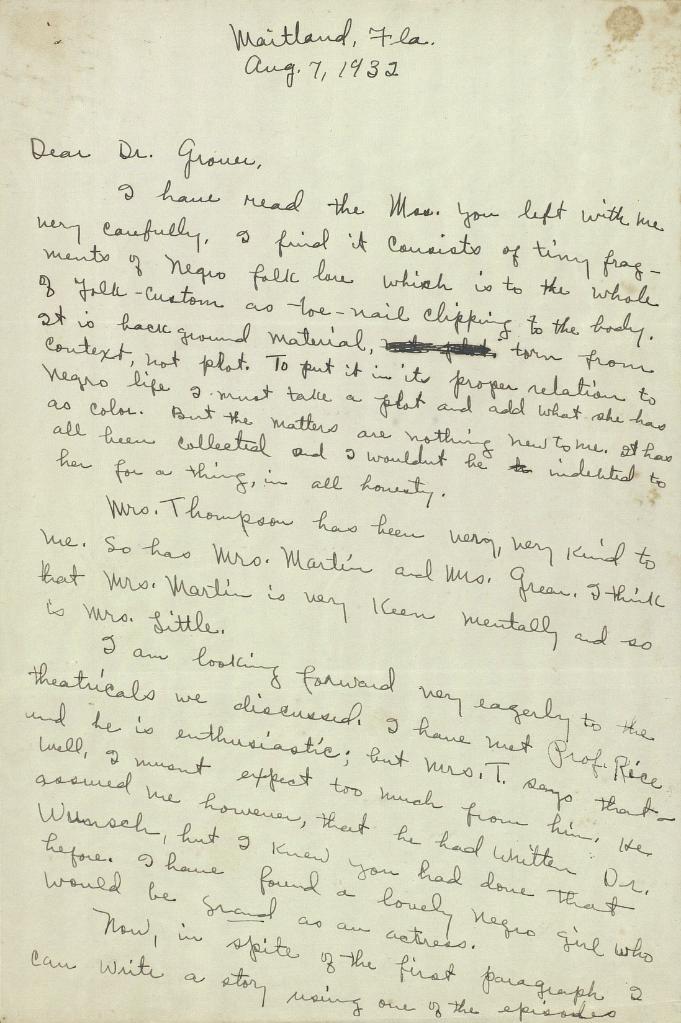 Maitland, Fla.
Aug. 7, 1932
Dear Dr. Grover,
I have read the Mss. you left with me
very carefully. I find it consists of tiny frag-
ments of Negro folk lore which is to the whole
of folk-custom as toe-nail clipping to the body.
It is back ground material, torn from
context, not plot. To put it in its proper relation to
Negro life I must take a plot and add what she has
as color. But the matters are nothing new to me. It has
all been collected and I wouldnt be indebted to
her for a thing, in all honesty.
Mrs. Thompson has been very, very kind to
me. So has Mrs. Martin and Mrs. Green. I think
that Mrs. Martin is very keen mentally and so
is Mrs. Little.
I am looking forward very eagerly to the
theatricals we discussed. I have met Prof. Rice
and he is enthusiastic; but Mrs. T. says that—
well, I musnt expect too much from him. He
assured me however, that he had written Dr.
Wunsch, but I knew you had done that
before. I have found a lovely Negro girl who
would be grand as an actress.
Now, in spite of the first paragraph I
can write a story using one of the episodes